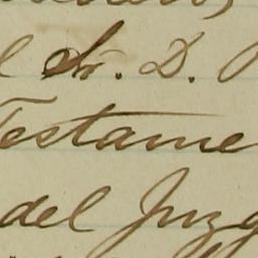 l Sr. D.
Testame
del Juzg